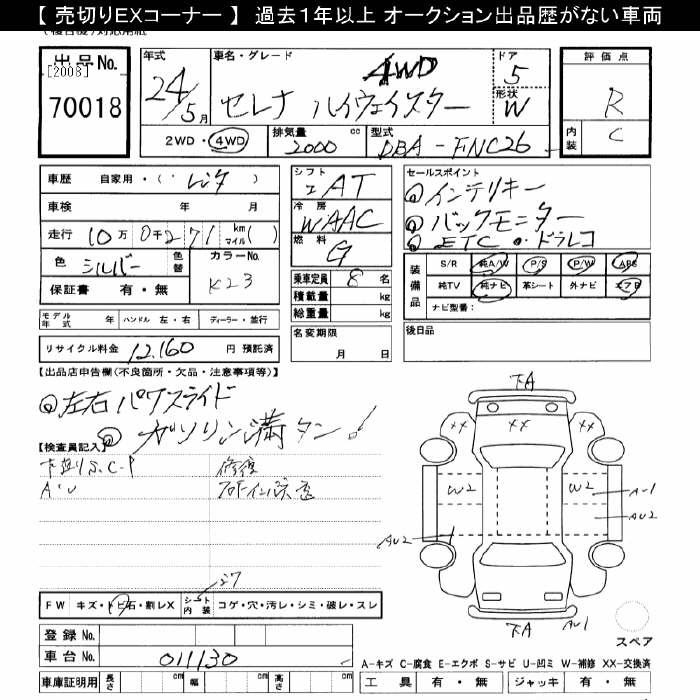 【 売切りEXコーナー 】 過去１年以上 オークション出品歴がない車両
出品No. [2008] 70018
年式 24/5月
車名・グレード セレナ ハイウェイスター 4WD
ドア 5
形状 W
評価点 R
内装 C
2WD・4WD
排気量 2000 cc
型式 DBA-FNC26
車歴 自家用・( レンタ )
車検 年 月
走行 10万0千271 km マイル ( )
色 シルバー 色替
カラーNo. K23
保証書 有・無
シフト AT
冷房 WAAC
燃料 G
乗車定員 8 名
積載量 kg
総重量 kg
セールスポイント
インテリキー
バックモニター
ETC・ドラレコ
装備品 S/R 純A/W P/S P/W ABS
純TV 純ナビ 革シート 外ナビ エアB
ナビ型番：
モデル年式 年 ハンドル 左・右 ディーラー・並行
名変期限 月 日
後日品
リサイクル料金 12,160 円 預託済
【出品店申告欄(不良箇所・欠品・注意事項等)】
左右パワスライド
ガソリン満タン!
【検査員記入】
下廻りS.C.P
A・U
修復
下A
XX XX XX
W2 W2
A-1
AU2
AU2
下A AU1
スペア
FW キズ・トビ石・割レX シート内装 コゲ・穴・汚レ・シミ・破レ・スレ
登録 No.
車台 No. 011130
車庫証明用 長さ cm 幅 cm 高さ cm
A-キズ C-腐食 E-エクボ S-サビ U-凹ミ W-補修 XX-交換済
工具 有・無 ジャッキ 有・無